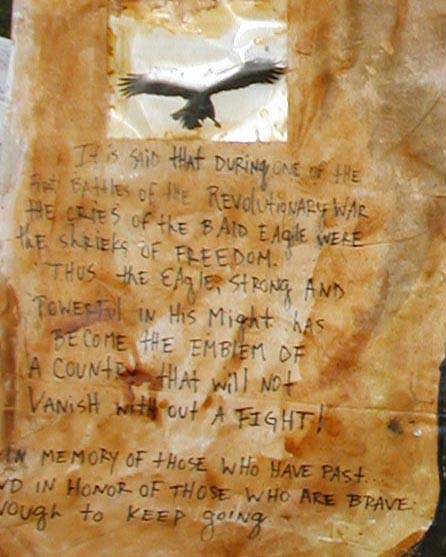 It is said that during one of the
first battles of the Revolutionary War
the cries of the Bald Eagle were
the shrieks of FREEDOM.
Thus the Eagle, strong and
Powerful in His Might has
become the emblem of
a country that will not
vanish with out a FIGHT!
in memory of those who have past...
and in honor of those who are brave
enough to keep going.